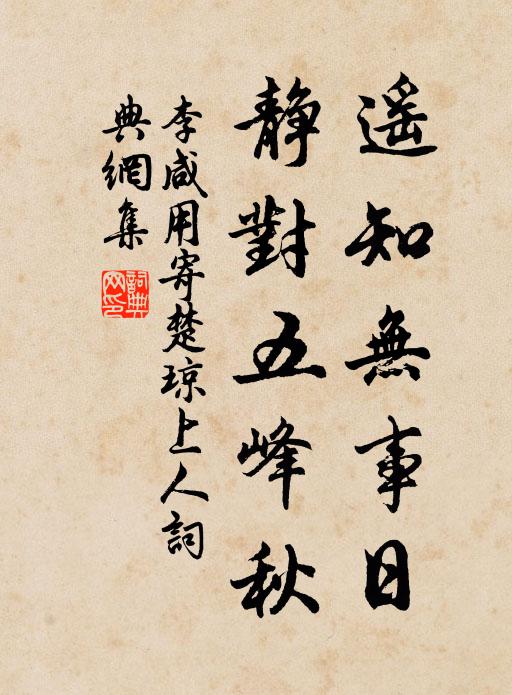 遥知無事日
静對五峰秋
李咸用寄楚琼上人詞
典網集
詞典网印